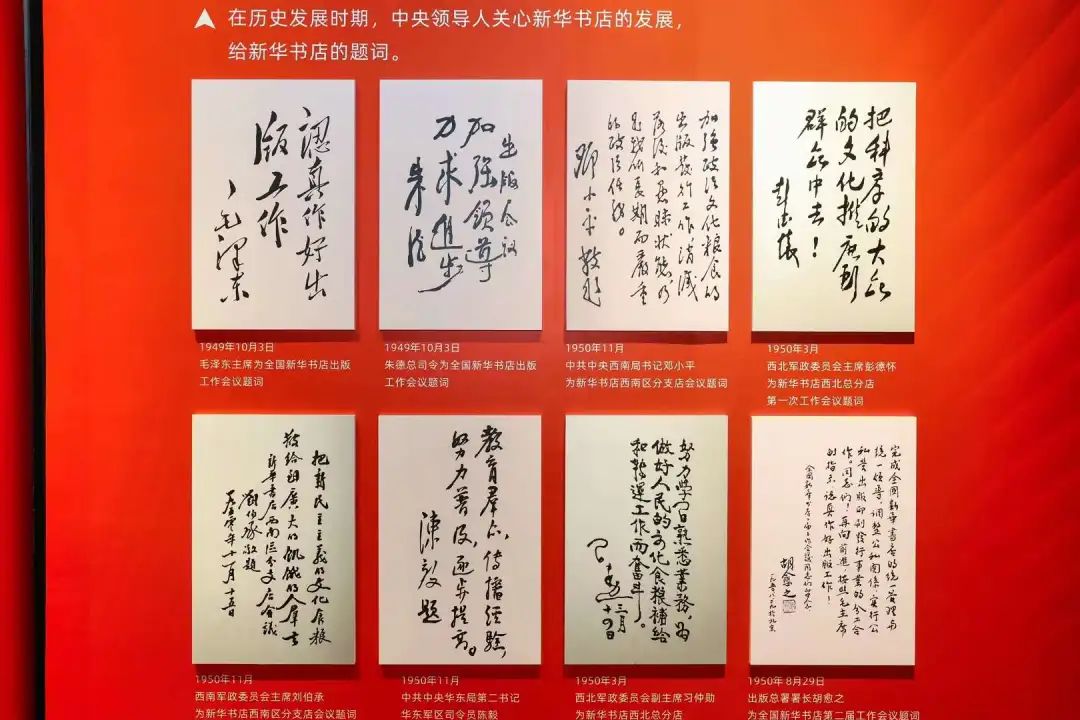 在历史发展时期，中央领导人关心新华书店的发展，
给新华书店的题词。
認真作好出
版工作
毛澤东
出版会议
加強領導
力求進步
朱德
1949年10月3日
毛泽东主席为全国新华书店出版
工作会议题词
1949年10月3日
朱德总司令为全国新华书店出版
工作会议题词
加強政治文化粮食的
出版發行工作，消滅
落後和愚昧状態乃
是我们長期而嚴重
的政治任務。
鄧小平敬題
1950年11月
中共中央西南局书记邓小平
为新华书店西南区分支店会议题词
把科学的大众
的文化推廣到
群众中去！
彭德懷
1950年3月
西北军政委员会主席彭德怀
为新华书店西北总分店
第一次工作会议题词
把新民主主義的文化食粮
散給廣大的飢餓的人羣去
新華書店西南區分支店會議
劉伯承敬題
一九五零年十一月十五日
1950年11月
西南军政委员会主席刘伯承
为新华书店西南区分支店会议题词
教育群众，傳播經驗，
努力普及，逐步提高。
陳毅題
1950年11月
中共中央华东局第二书记
华东军区司令员陈毅
努力學习熟悉業務，为
做好人民的文化食粮補給
和執運工作而奮斗。
三月
十四日
1950年3月
西北军政委员会副主席习仲勋
为新华书店西北总分店
完成全國新華書店的統一管理与
統一領導，調整公私關係，实行公
私营出版印刷發行事業的分工合
作。同志们！再向前進，按照毛主席
的指示，認真作好出版工作！
胡愈之
1950年 8月29日
出版总署署长胡愈之
为全国新华书店第二届工作会议题词